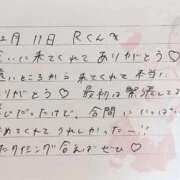 2月11日 Rくんへ
いに来てくれて ありがとう♡
いところから 来てくれて 本当に
りがとう♡ 最初は緊張して
じだったけど、合間に いっぱい
めてくれて うれしかったー!!
たタイミング 合えばぜひ♡